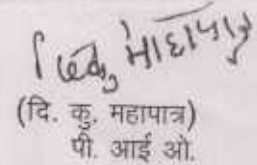 (दि. कु. महापात्र)
पी. आई ओ.